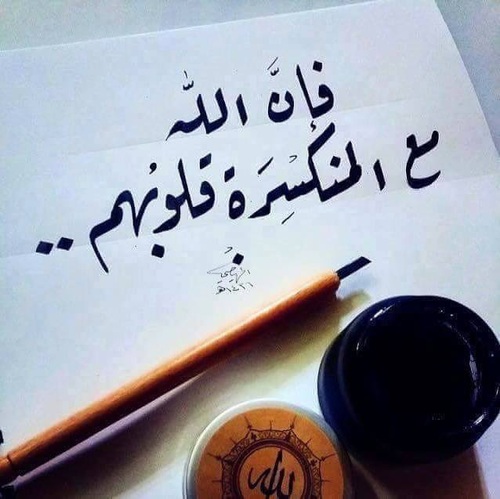 فإنَّ اللّٰه
مع المنكسِرَة قلوبُهم ..
الله